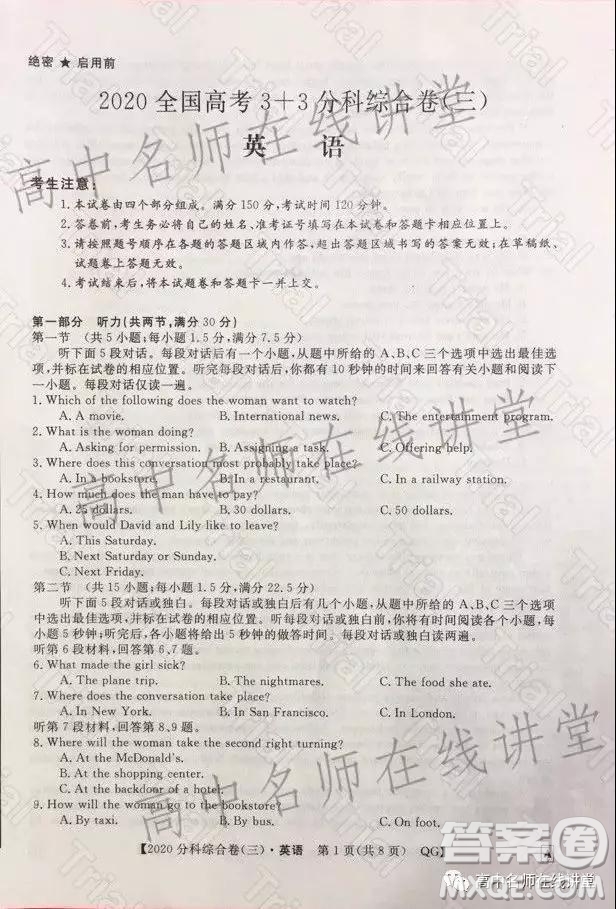 绝密 ★ 启用前
2020 全国高考 3+3 分科综合卷(三)
英 语
考生注意:
1. 本试卷由四个部分组成。满分 150 分,考试时间 120 分钟。
2. 答卷前,考生务必将自己的姓名、准考证号填写在本试卷和答题卡相应位置上。
3. 请按照题号顺序在各题的答题区域内作答,超出答题区域书写的答案无效;在草稿纸、
试题卷上答题无效。
4. 考试结束后,将本试题卷和答题卡一并上交。
第一部分 听力(共两节,满分 30 分)
第一节 (共 5 小题;每小题 1.5 分,满分 7.5 分)
听下面 5 段对话。每段对话后有一个小题,从题中所给的 A、B、C 三个选项中选出最佳选
项,并标在试卷的相应位置。听完每段对话后,你都有 10 秒钟的时间来回答有关小题和阅读下
一小题。每段对话仅读一遍。
1. Which of the following does the woman want to watch?
A. A movie. B. International news. C. The entertainment program.
2. What is the woman doing?
A. Asking for permission. B. Assigning a task. C. Offering help.
3. Where does this conversation most probably take place?
A. In a bookstore. B. In a restaurant. C. In a railway station.
4. How much does the man have to pay?
A. 25 dollars. B. 30 dollars. C. 50 dollars.
5. When would David and Lily like to leave?
A. This Saturday.
B. Next Saturday or Sunday.
C. Next Friday.
第二节 (共 15 小题;每小题 1.5 分,满分 22.5 分)
听下面 5 段对话或独白。每段对话或独白后有几个小题,从题中所给的 A、B、C 三个选项
中选出最佳选项,并标在试卷的相应位置。听每段对话或独白前,你将有时间阅读各个小题,每
小题 5 秒钟;听完后,各小题将给出 5 秒钟的做答时间。每段对话或独白读两遍。
听第 6 段材料,回答第 6、7 题。
6. What made the girl sick?
A. The plane trip. B. The noodles. C. The food she had.
7. Where does the conversation take place?
A. In New York. B. In London. C. In Paris.
听第 7 段材料,回答第 8、9 题。
8. Where will the woman take the second right turning?
A. At the McDonald's.
B. At the shopping center.
C. At the backdoor of a hotel.
9. How will the woman go to the bookstore?
A. By taxi. B. By bus. C. On foot.
【2020 分科综合卷(三)·英语 第 1 页(共 8 页) QG】
高中名师在线讲堂
高中名师在线讲堂
高中名师在线讲堂
答案圈
高中名师在线讲堂